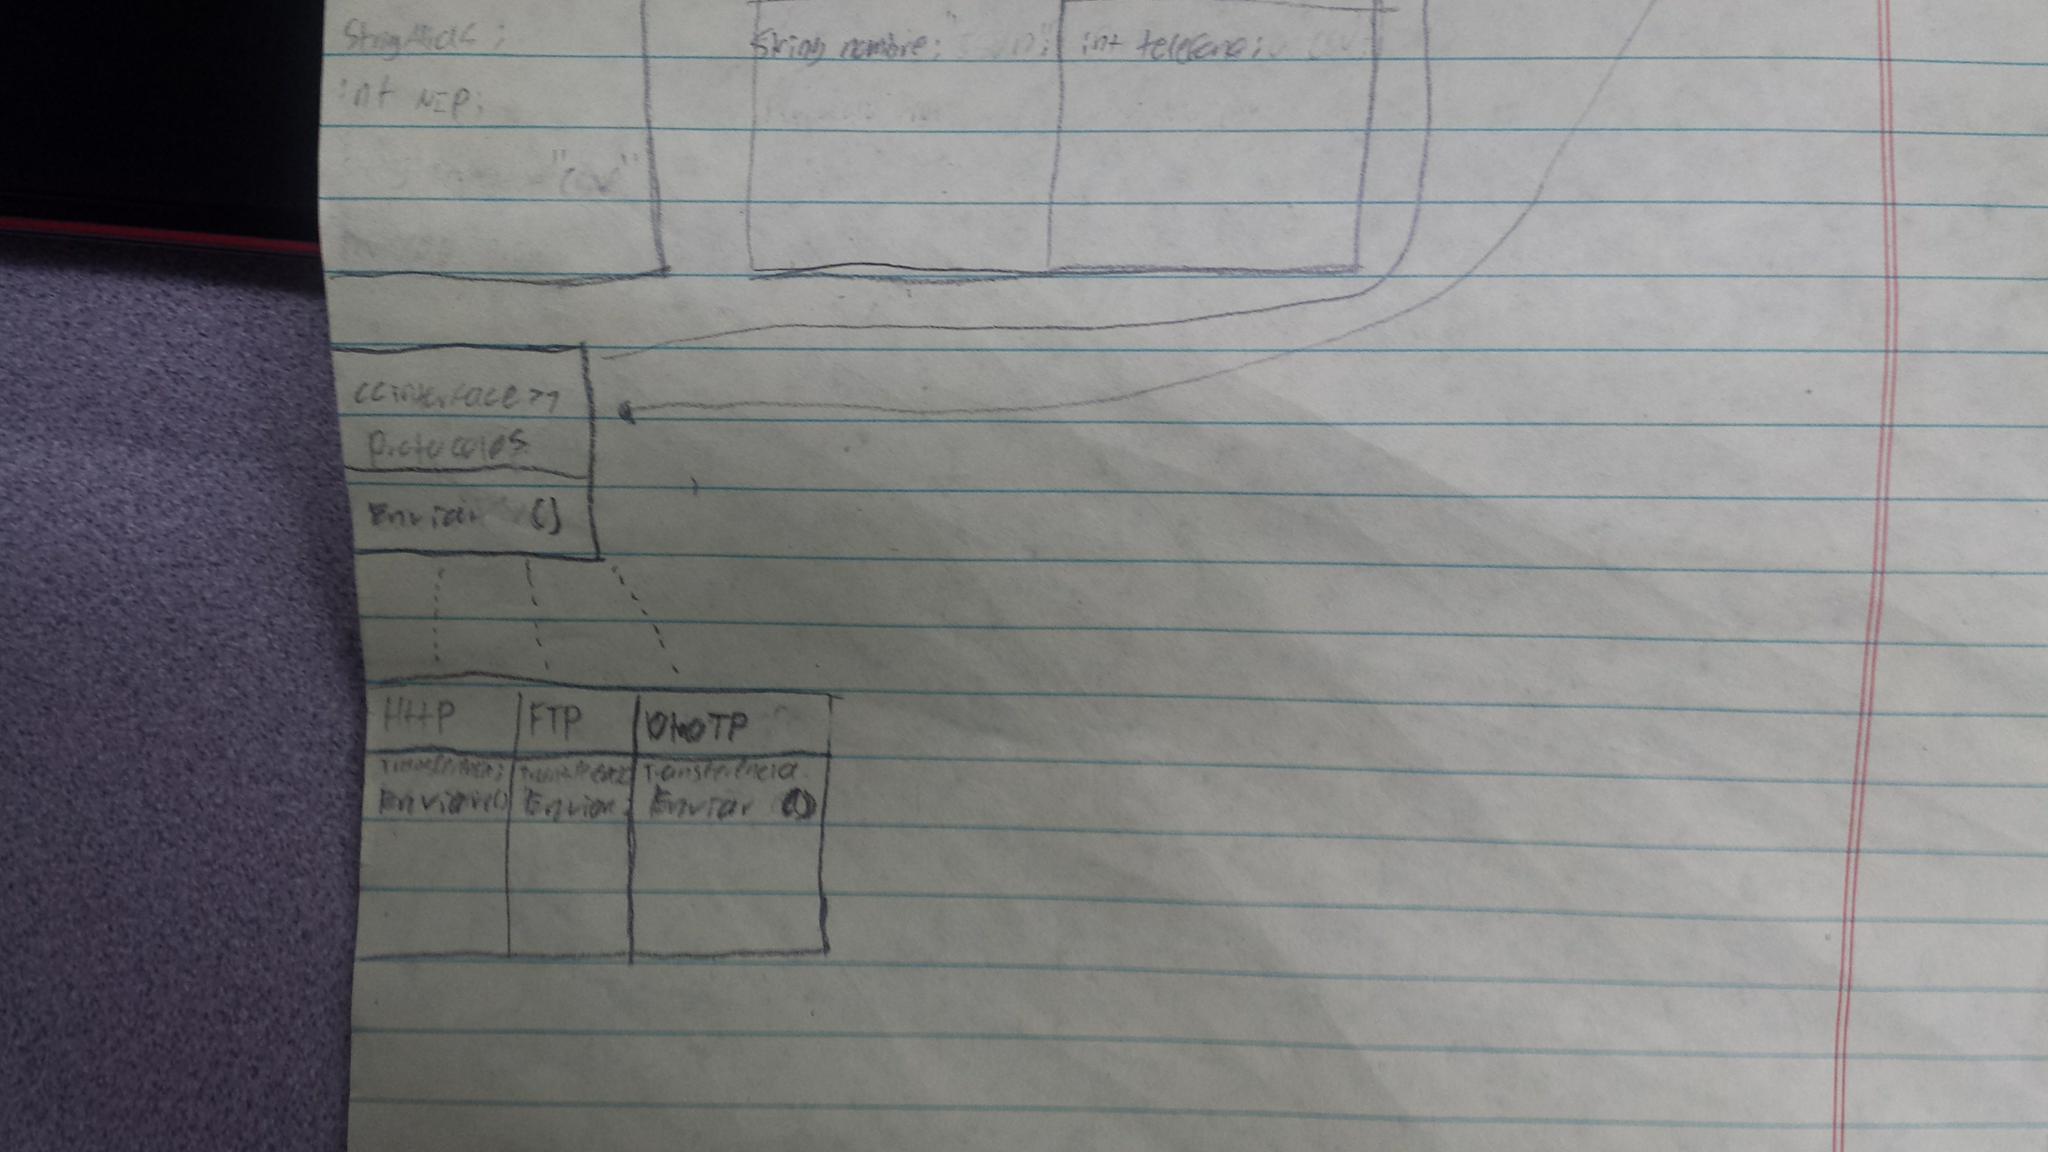 String Alias;
int NIP;
"CSV"
String nombre;
int telefono;
<<interface>>
Protocolos
Enviar ()
HTTP
FTP
OtroTP
Transferencia
Enviar()
Transferencia
Enviar
Transferencia
Enviar ()